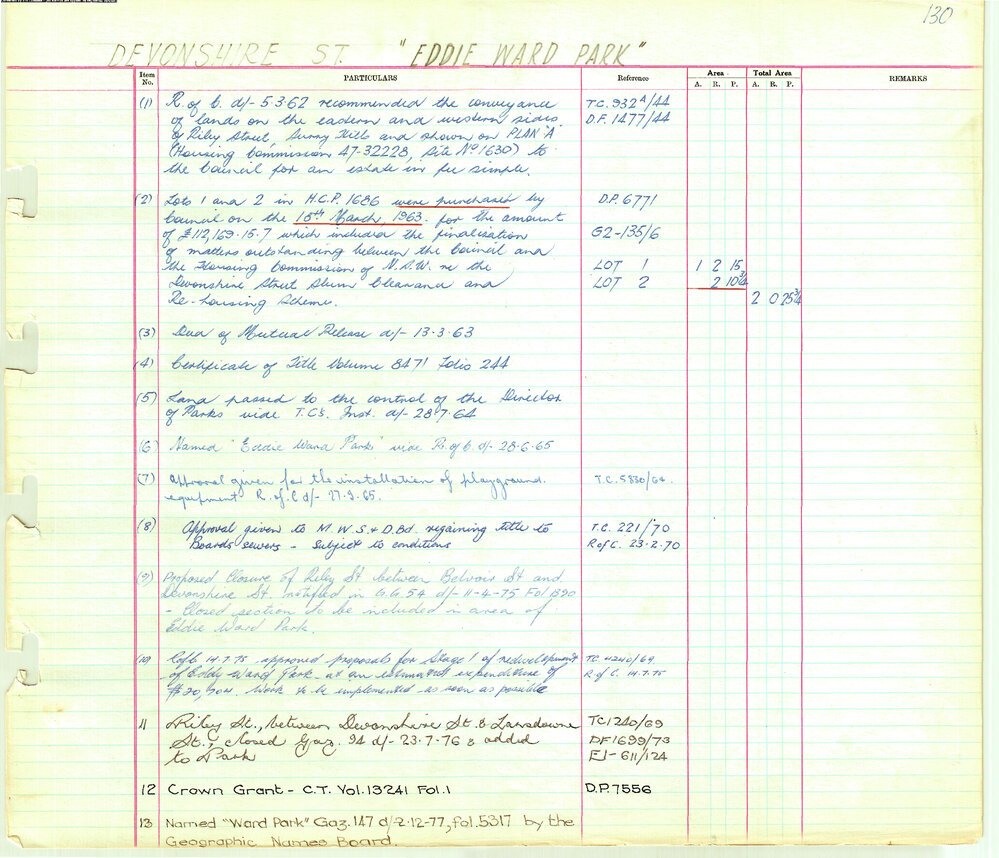 130
DEVONSHIRE ST. "EDDIE WARD PARK"
Item No. PARTICULARS Reference Area Total Area REMARKS
A. R. P. A. R. P.
(1) R. of C. d/- 5.3.62 recommended the conveyance T.C. 932A/44
of lands on the eastern and western sides D.F. 1477/44
of Riley Street, Surry Hills and shown on PLAN 'A'
(Housing Commission A7-32228, Site No 1630) to
the Council for an estate in fee simple.
(2) Lots 1 and 2 in H.C.P. 1686 were purchased by D.P. 6771
Council on the 15th March, 1963. for the amount
of £112,169.15.7 which included the finalisation G2-135/6
of matters outstanding between the Council and
the Housing Commission of N.S.W. re the LOT 1 1 2 15
Devonshire Street Slum Clearance and LOT 2 2 10¾
Re-housing Scheme. 2 0 25¾
(3) Deed of Mutual Release d/- 13.3.63
(4) Certificate of Title Volume 8471 Folio 244
(5) Land passed to the control of the Director
of Parks vide T.C's. Inst. d/- 28.7.64
(6) Named "Eddie Ward Park" vide R. of C. d/- 28.6.65
(7) Approval given for the installation of playground T.C. 5830/64.
equipment R. of C d/- 27.9.65.
(8) Approval given to M.W.S. & D.Bd. regaining title to T.C. 221/70
Boards sewers - Subject to conditions R of C. 23-2-70
(9) Proposed Closure of Riley St between Belvoir St and
Devonshire St. notified in G.G. 54 d/- 11-4-75 Fol 1390
- Closed section to be included in area of
Eddie Ward Park.
(10) R of C 14.7.75 approved proposals for Stage 1 of redevelopment T.C. 4240/69
of Eddy Ward Park at an estimated expenditure of R. of C. 14.7.75
$20,204. Work to be implemented as soon as possible
11 Riley St., between Devonshire St. & Lansdowne TC1240/69
St., closed Gaz. 94 d/- 23-7-76 & added DF1699/73
to Park E1-611/124
12 Crown Grant - C.T. Vol. 13241 Fol. 1 D.P. 7556
13 Named "Ward Park" Gaz. 147 d/-2-12-77, fol. 5317 by the
Geographic Names Board.